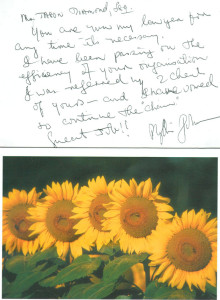 You are now my lawyer for
any time its necessary.
I have been passing on the
efficiency of your organisation
I was referred by 2 clients
of yours – and I have vowed
to continue the "chain"
Great Job!!